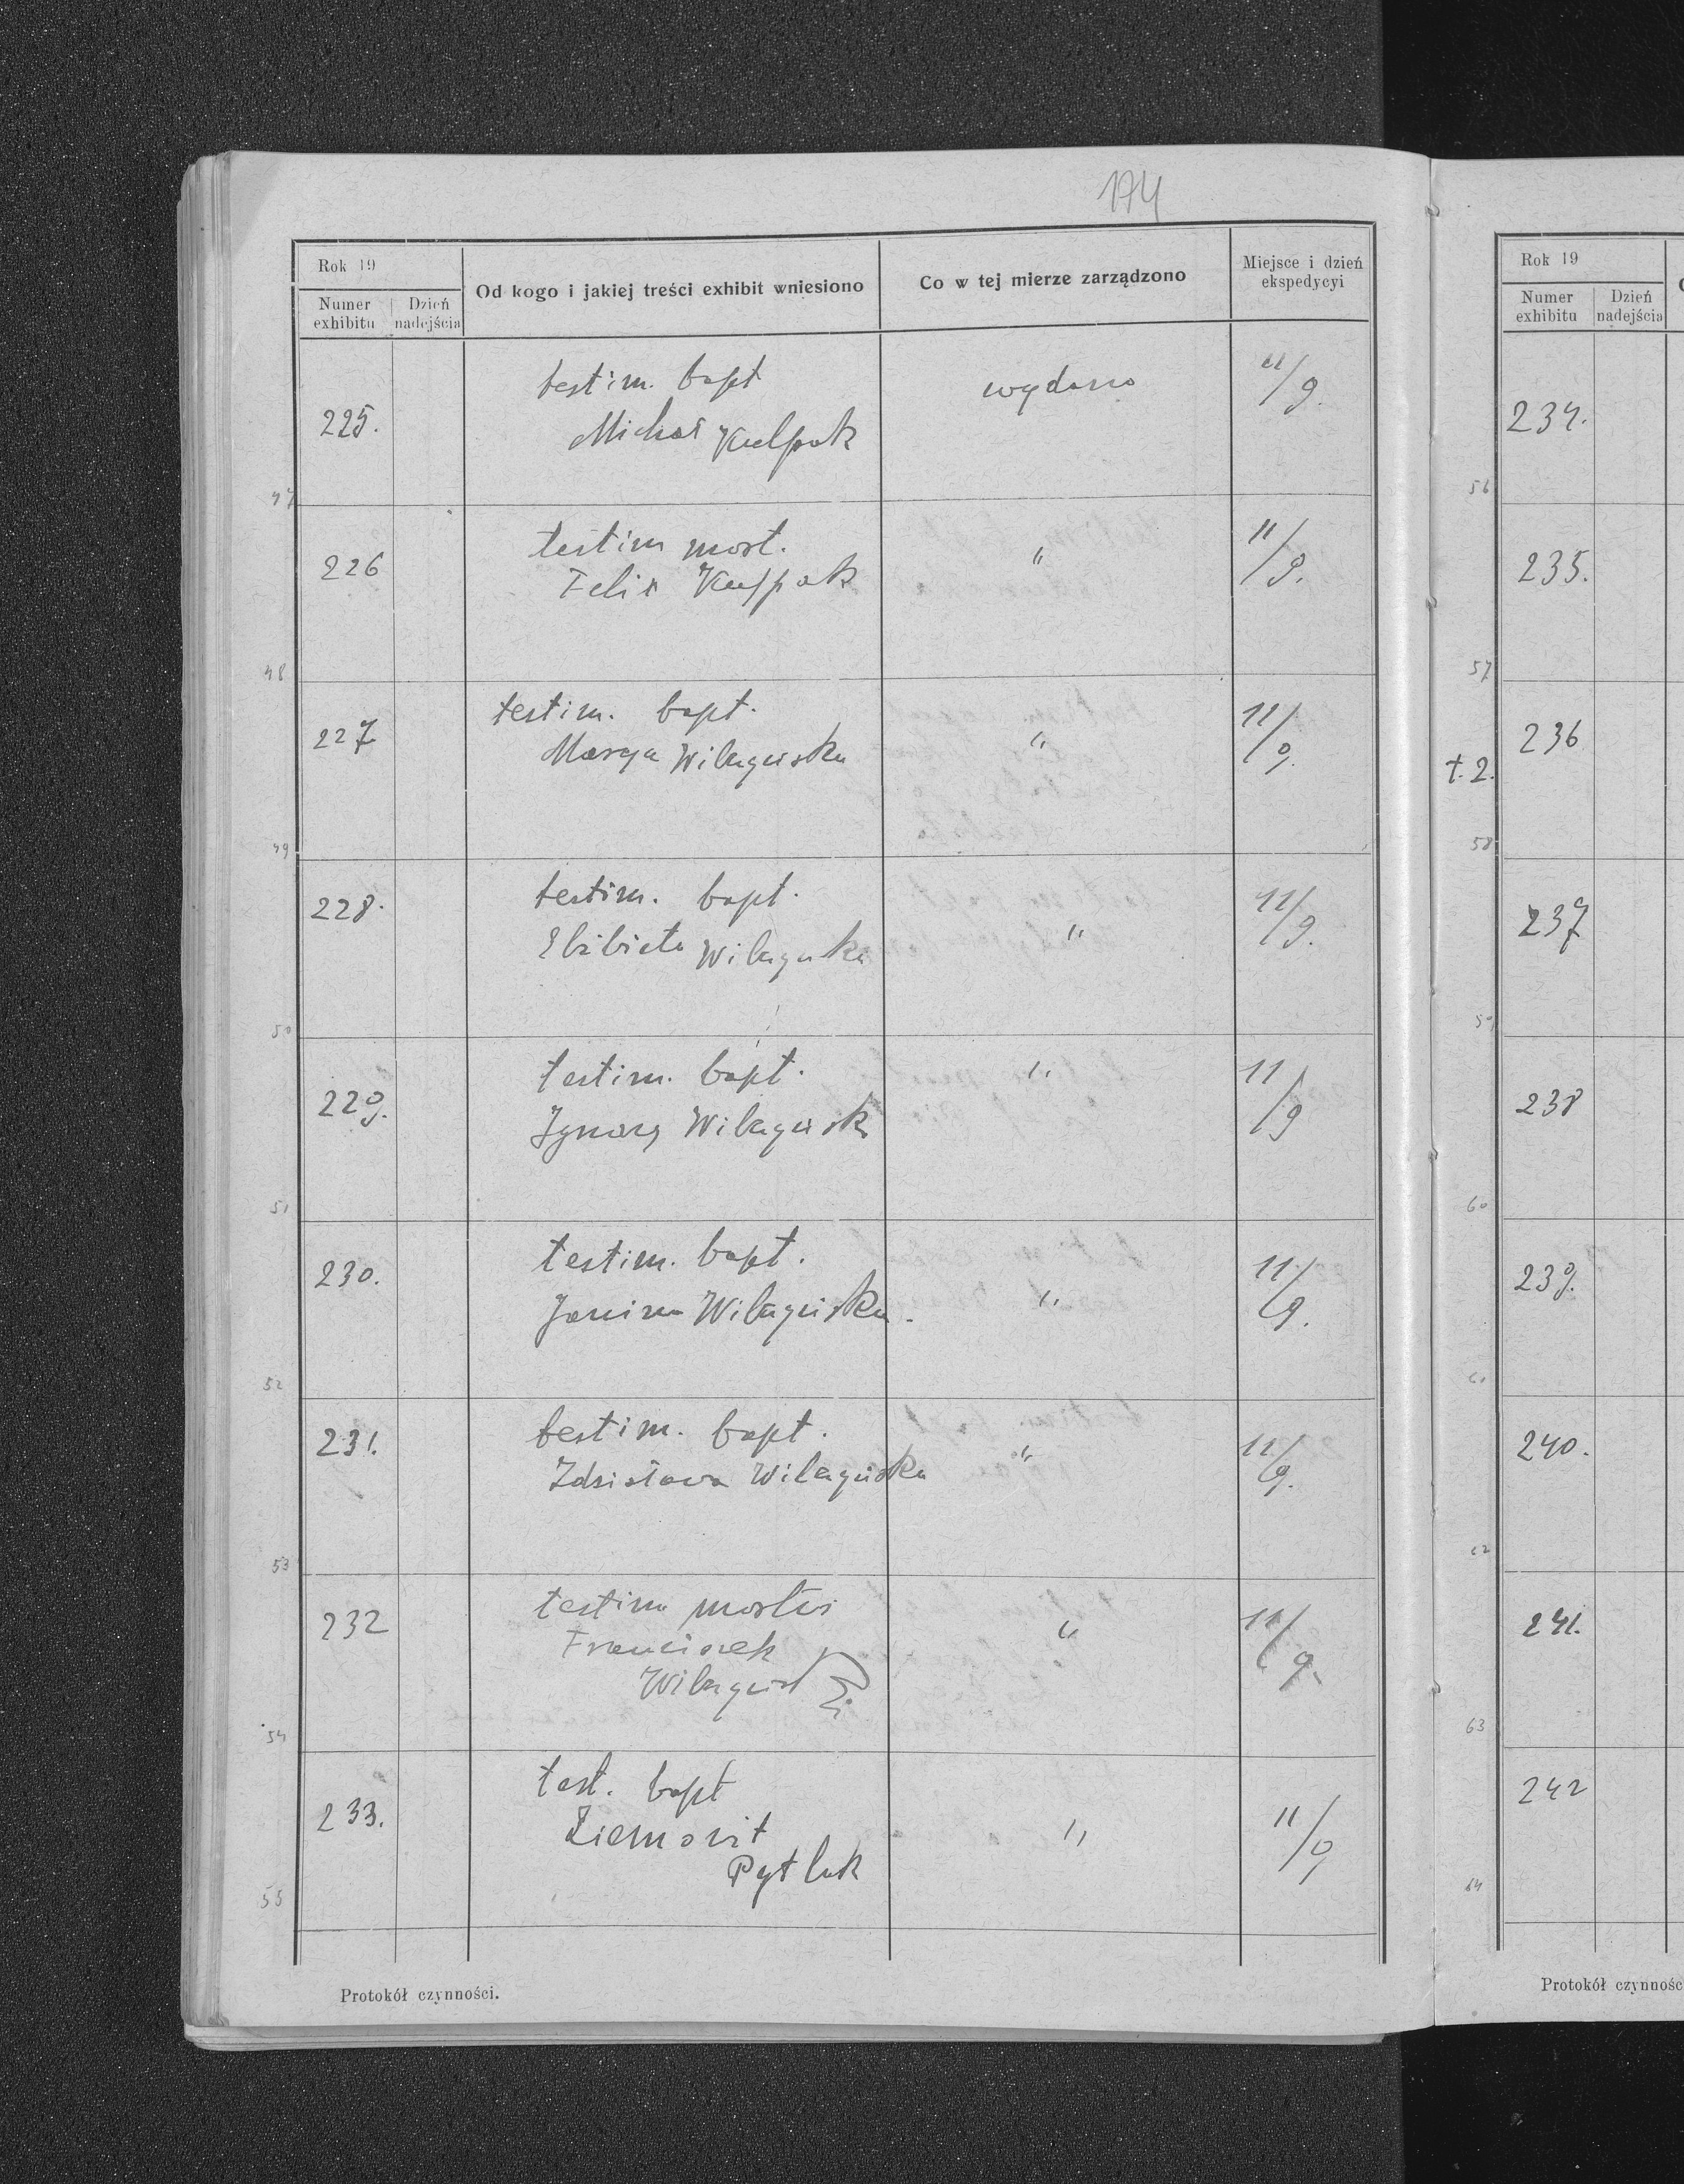 174
Rok 19
Numer exhibitu
Dzień nadejścia
Od kogo i jakiej treści exhibit wniesiono
Co w tej mierze zarządzono
Miejsce i dzień ekspedycyi
225.
testim. bapt
wydano
11/9.
Michał Kulpak
47
226
testim mort.
"
11/9.
Felix Kulpak
48
227
testim. bapt.
"
11/9.
Marya
49
228.
testim. bapt.
"
11/9.
Elżbieta
50
229.
testim. bapt.
"
11/9
Ignacy
51
230.
testim. bapt.
"
11/9.
Janina
52
231.
testim. bapt.
"
11/9.
Zdzisława
53
232
testim mortis
"
11/9.
Franciszek
54
233.
test. bapt
"
11/9
Ziemowit
Pytlak
55
Protokół czynności.
Rok 19
Numer exhibitu
Dzień nadejścia
234.
56
235.
57
236
t. 2.
58
237
59
238
60
239.
61
240.
62
241.
63
242
64
Protokół czynnośc